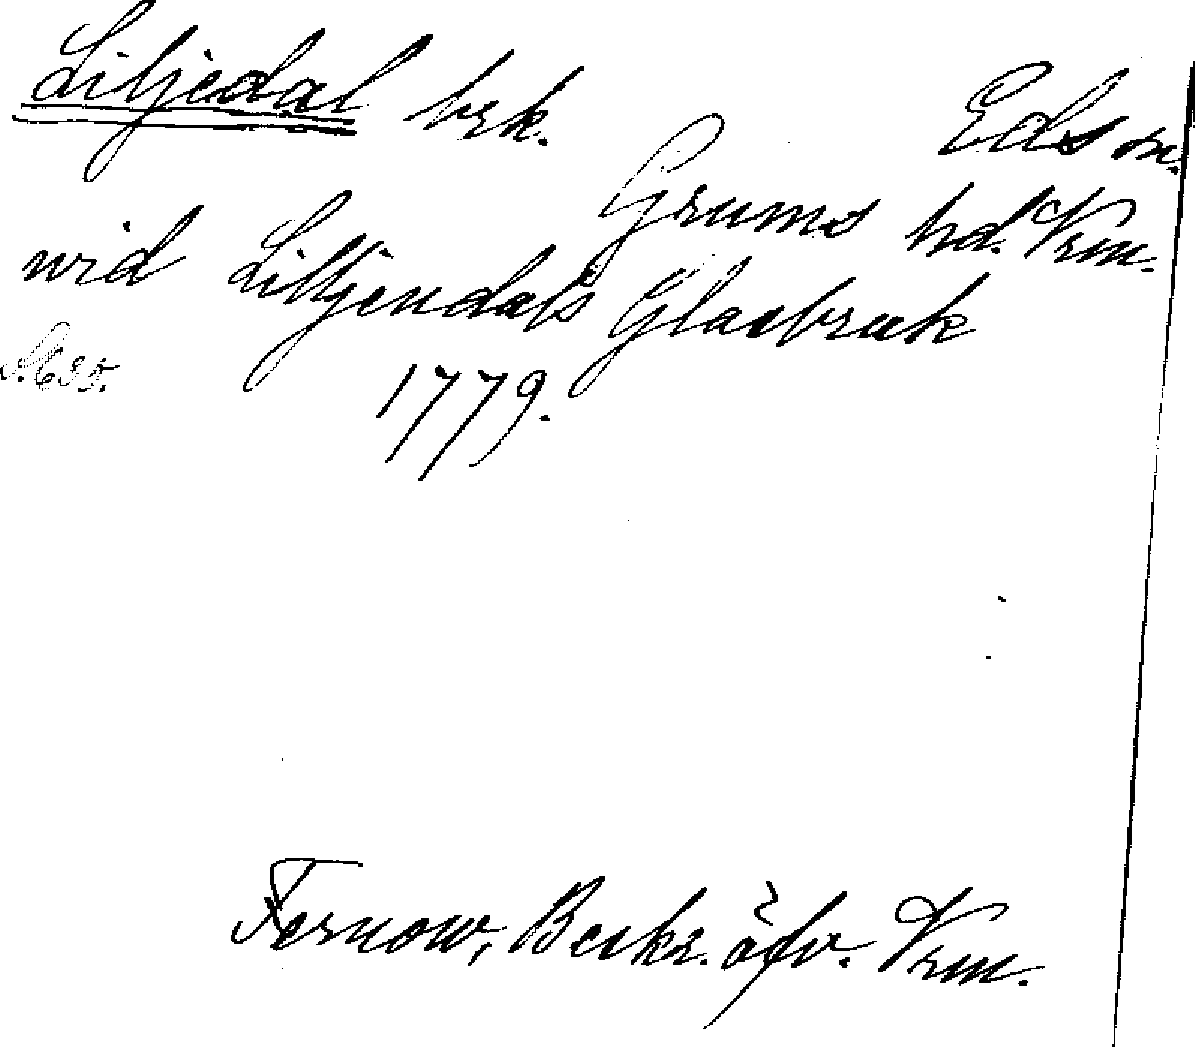 Liljedal brk. Eds sn.
Grums hd. Vrm.
wid Lilljendals Glasbruk
s. 635.
1779.
Fernow, Beskr. öfv. Vrm.